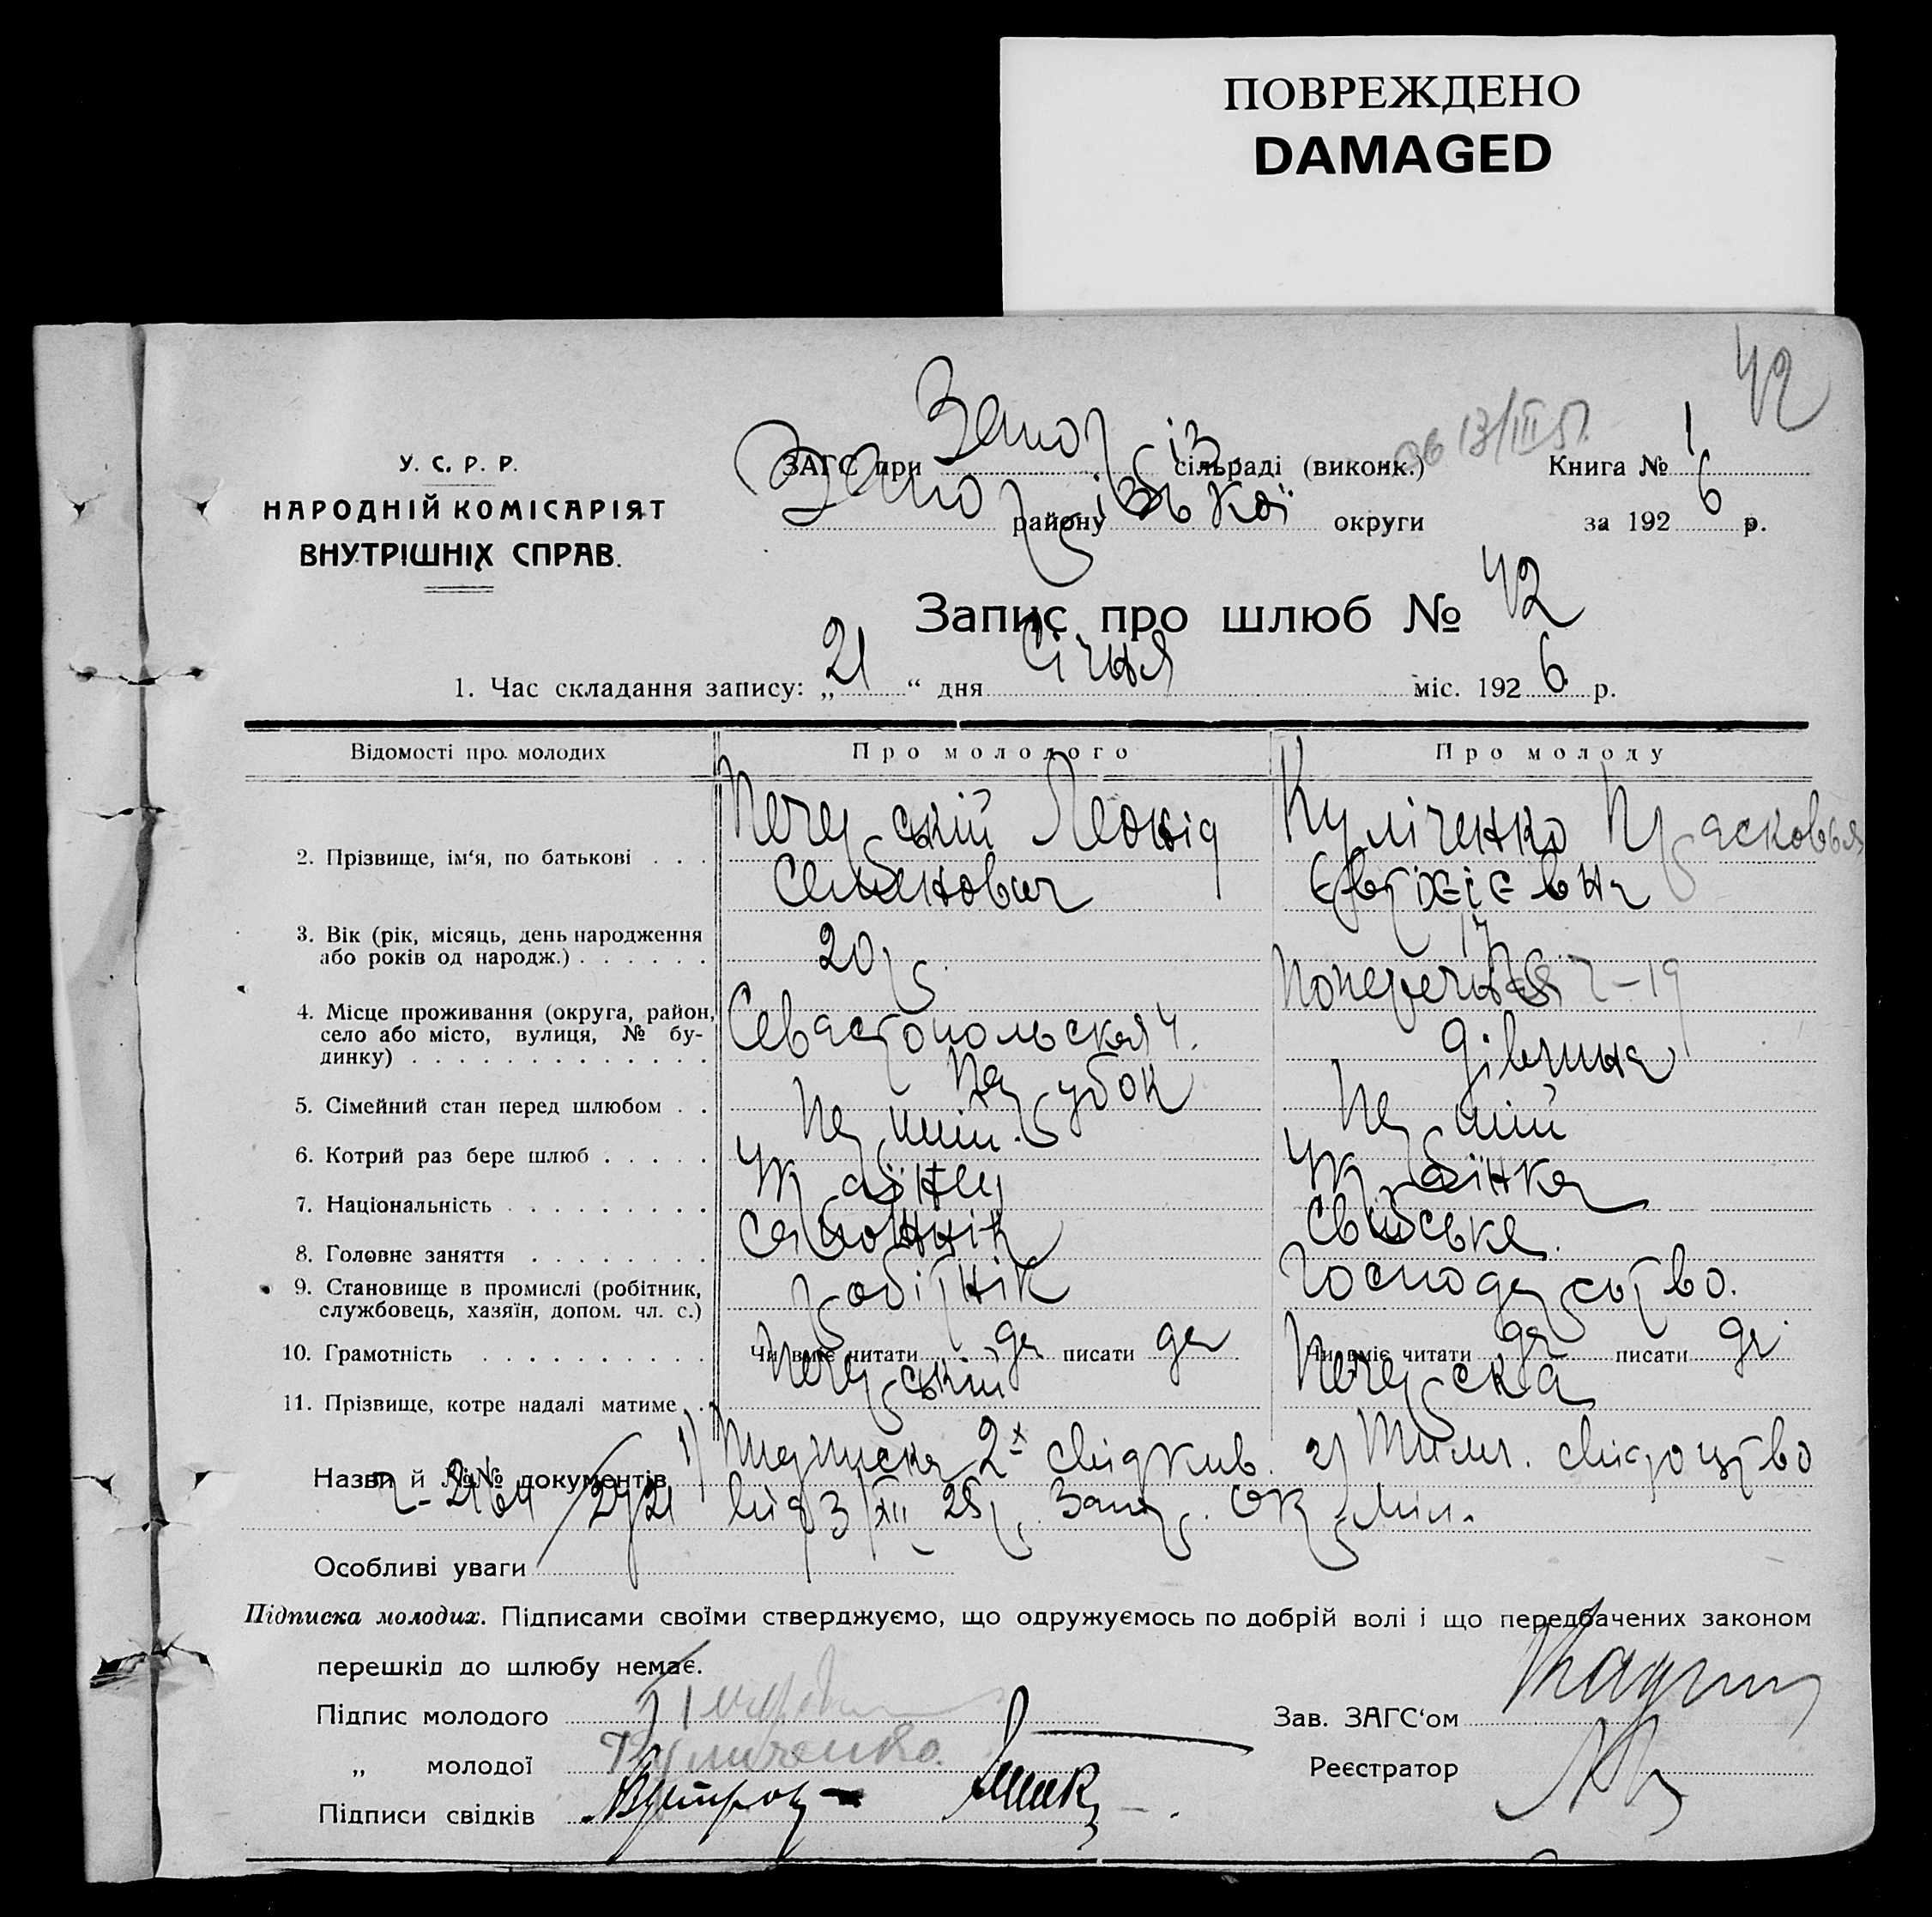 ПОВРЕЖДЕНО
DAMAGED
42
У. С. Р. Р.
НАРОДНІЙ КОМІСАРІЯТ
ВНУТРІШНІХ СПРАВ.
ЗАГС при сільраді (виконк.) Книга № 1
району округи за 1926 р.
Запис про шлюб № 42
1. Час складання запису: „21“ дня Січня міс. 1926 р.
Відомості про молодих Про молодого Про молоду
2. Прізвище, ім'я, по батькові . . . Печерський Леонід Куліченко Прасковья
Семенович
3. Вік (рік, місяць, день народження
або років од народж.) . . . . . . 20р. 17р
4. Місце проживання (округа, район,
село або місто, вулиця, № бу-
динку) . . . . . . . . . . . . . Севастопольская 4. Поперечная
5. Сімейний стан перед шлюбом . . Парубок дівчина
6. Котрий раз бере шлюб . . . . . Перший. Перший
7. Національність . . . . . . . . . Українец Українка
8. Головне заняття . . . . . . . . Свійське
9. Становище в промислі (робітник,
службовець, хазяїн, допом. чл. с.) робітнік Господарство.
10. Грамотність . . . . . . . . . . Чи вміє читати да писати да Чи вміє читати да писати да
11. Прізвище, котре надалі матиме . Печерський Печерська
Назви й №№ документів 1) Підписка 2х свідків. 2) Тимч. свідоцтво
від 3/XII 25р. Запор. Окр. Міл.
Особливі уваги
Підписка молодих. Підписами своїми стверджуємо, що одружуємось по добрій волі і що передбачених законом
перешкід до шлюбу немає.
Підпис молодого
Зав. ЗАГС'ом
„ молодої Куличенко.
Реєстратор
Підписи свідків